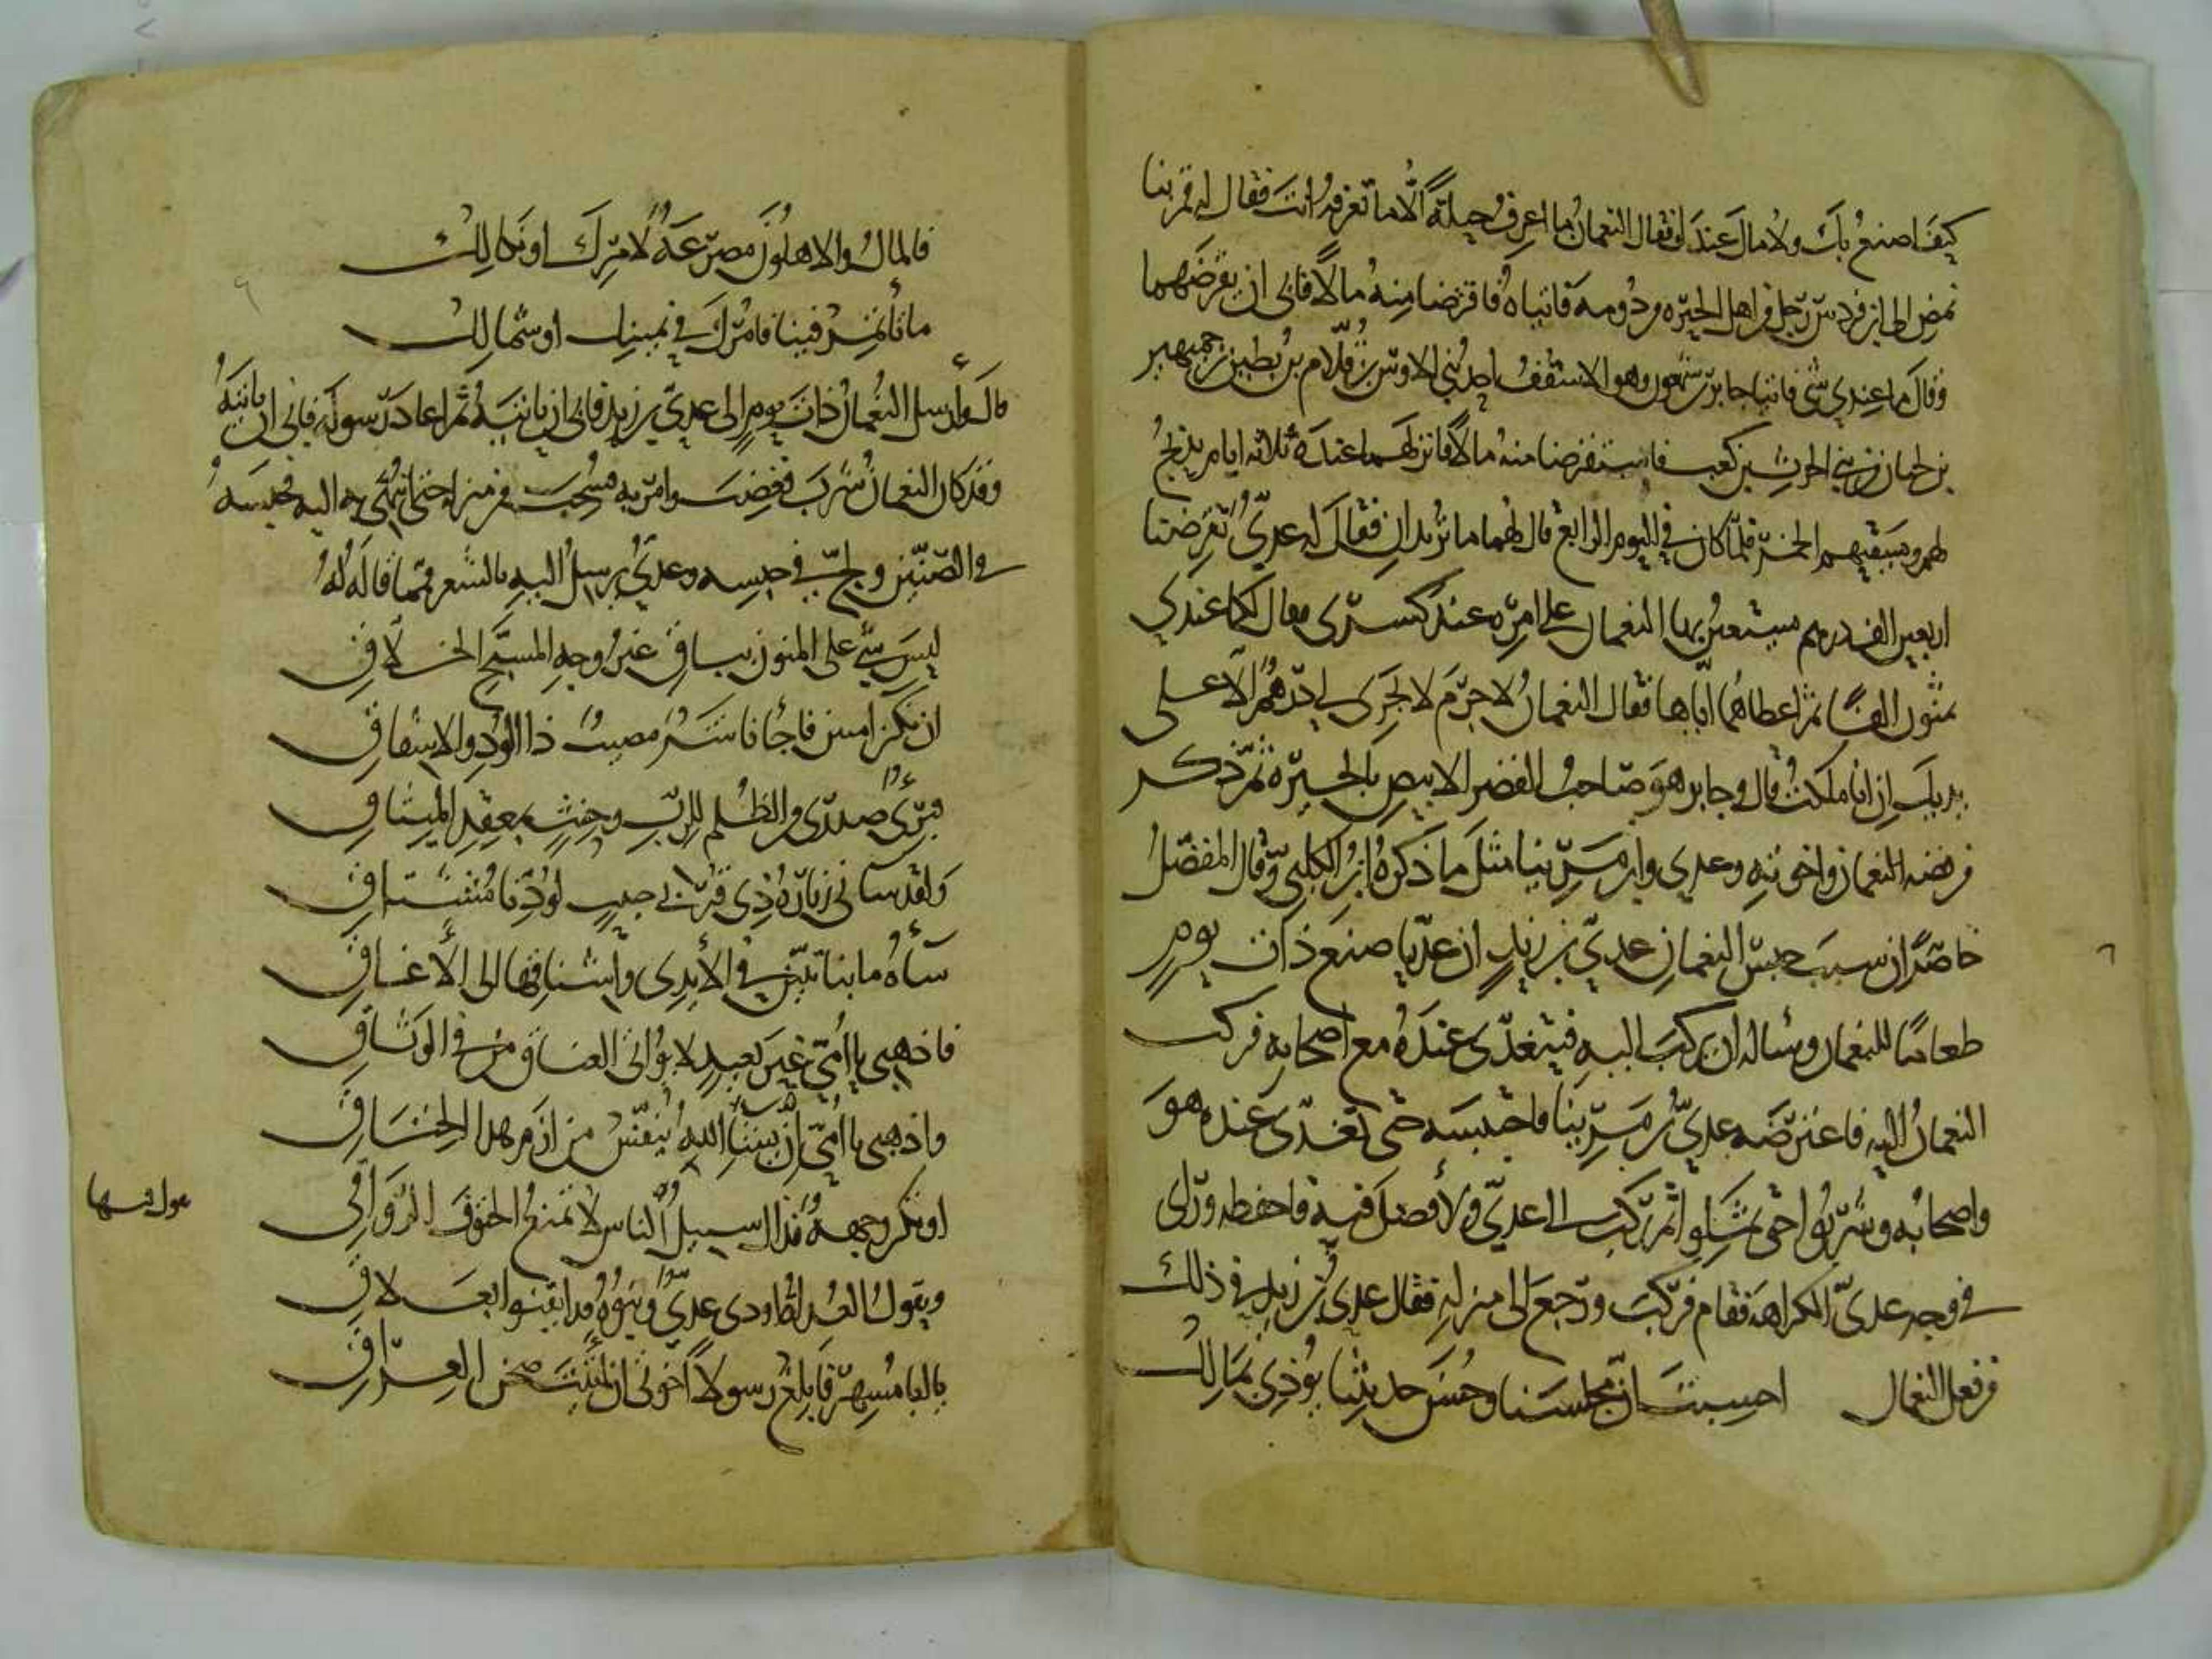 كيف اصنع بك ولا مال عندك فقال النعمان ما اعرف حيلة الا ما تعرفه انت فقال له قم بنا
نمض الى ابن فردس رجل من اهل الحيرة ودومه فاتياه فاقترضا منه مالا فابى ان يقرضهما
وقال ما عندي شي فاتيا جابر بن شمعون وهو الاسقف احد بني الاوس بن قلام بن بطين بن جمهير
بن لحيان من بني الحرث بن كعب فاستقرضا منه مالا فانزلهما عنده ثلاثة ايام يذبح
لهم ويسقيهم الخمر فلما كان في اليوم الرابع قال لهما ما تريدان فقال له عدي تقرضنا
اربعين الف درهم يستعين بها النعمان على امره عند كسرى فقال لكما عندي
ثمنون الفا ثم اعطاهما اياها فقال النعمان لا جرم لا جرى لي درهم الا على
يديك ان انا ملكت قال وجابر هو صاحب القصر الابيض بالحيرة ثم ذكر
من قصه النعمان واخوته وعدي وابن مرينا مثل ما ذكره ابن الكلبي وقال المفضل
خاصة ان سبب حبس النعمان عدي بن زيد ان عديا صنع ذات يوم
طعاما للنعمان وساله ان يركب اليه فيتغدى عنده مع اصحابه فركب
النعمان اليه فاعترضه عدي بن مرينا فاحتبسه حتى تغدى عنده هو
واصحابه وشربوا حتى ثملوا ثم ركب الى عدي ولا فضل فيه فاحفظه وراى
في وجه عدي الكراهة فقام فركب ورجع الى منزله فقال عدي بن زيد في ذلك
من فعل النعمان احسبت ان مجلسنا وحسن حديثنا يوذي بمالك
فالمال والاهلون مصرعة لامرك او نكالك
ما تأتمر فينا فامرك في يمينك او شمالك
قال وأرسل النعمان ذات يوم الى عدي بن زيد فابى ان ياتيه ثم اعاد رسوله فابى ان ياتيه
وقد كان النعمان شرب فغضب وامر به فسحب من منزله حتى انتهي به اليه فحبسه
في الصنين ولج في حبسه وعدي يرسل اليه بالشعر فمما قاله له
ليس شي على المنون بباق غير وجه المسبح الخلاق
ان نكن امنين فاجأنا شر مصيب ذا الود والاشفاق
فبرئ صدري والظلم للرب وحنث بمعقد الميثاق
ولقد ساني زيارة ذي قربى حبيب لودنا مشتاق
ساه ما بنا تبين في الأيدي واشناقها الى الأعناق
فاذهبي يا أميم غير بعيد لا يواتي العناق من في الوثاق
واذهبي يا أميم ان يشأ الله ينفس من ازم هذا الخناق
او تكن وجهة فذاك سبيل الناس لا تمنع الحتوف الرواقي
ويقول العداة اودى عدي وبنوه قد ايقنوا بعلاق
يا أبا مسهر فابلغ رسولا اخوتي ان أتيت صحن العراق
يقول فيها